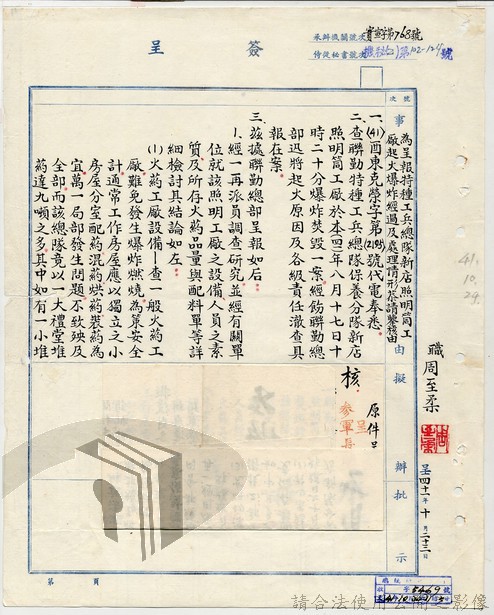 簽呈
來歸機關號次
侍從秘書號次
號次
事由擬辦批示
為呈報特種工兵總隊新店照明筒工
廠起火爆炸經過及處理情形恭請鑒核由
一、(41)酉東克榮字第(218)號代電奉悉。
二、查聯勤特種工兵總隊保養分隊新店
照明筒工廠於本(四一)年八月十七日十
時二十分爆炸焚毀一案經飭聯勤總
部迅將起火原因及各級責任澈查具
報在案。
三、茲據聯勤總部呈報如后：
1.經一再派員調查研究並經有關單
位就該照明工廠之設備人員之素
質及所存火药品量與配料單等詳
細檢討其結論如左：
(1)火药工廠設備—查一般火药工
廠難免發生爆炸燃燒為策安全
計通常工作房屋應以獨立之小
房屋分室配药混药烘药裝药為
宜萬一局部發生問題不致殃及
全部而該總隊竟以一大禮堂堆
药達九噸之多其中如有一小堆
職周至柔
呈四十一年十月二十三日
41.
10.
29.
原件呈
核
參軍長
第 頁
5469
請合法使用
影像